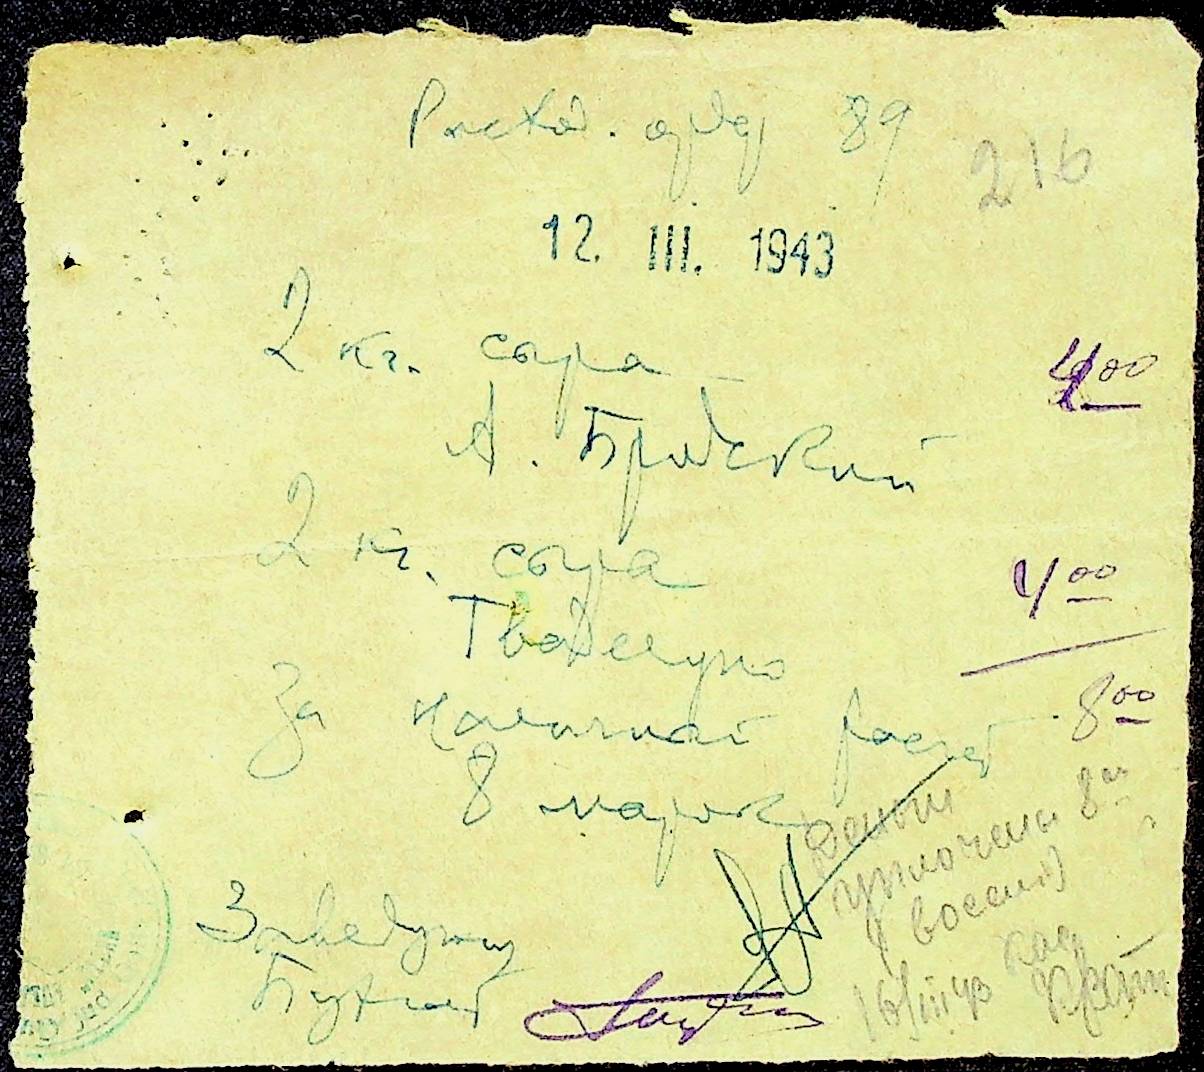 Расход. орд 89
216
12. III. 1943
2 кг. сыра 4 00
А. Бродский
2 кг. сыра 4 00
8 00
За наличный расчет
8 марок
Заведующ
Бухгалт
Деньги
уплочены 8 00
(восемь)
16/III 43